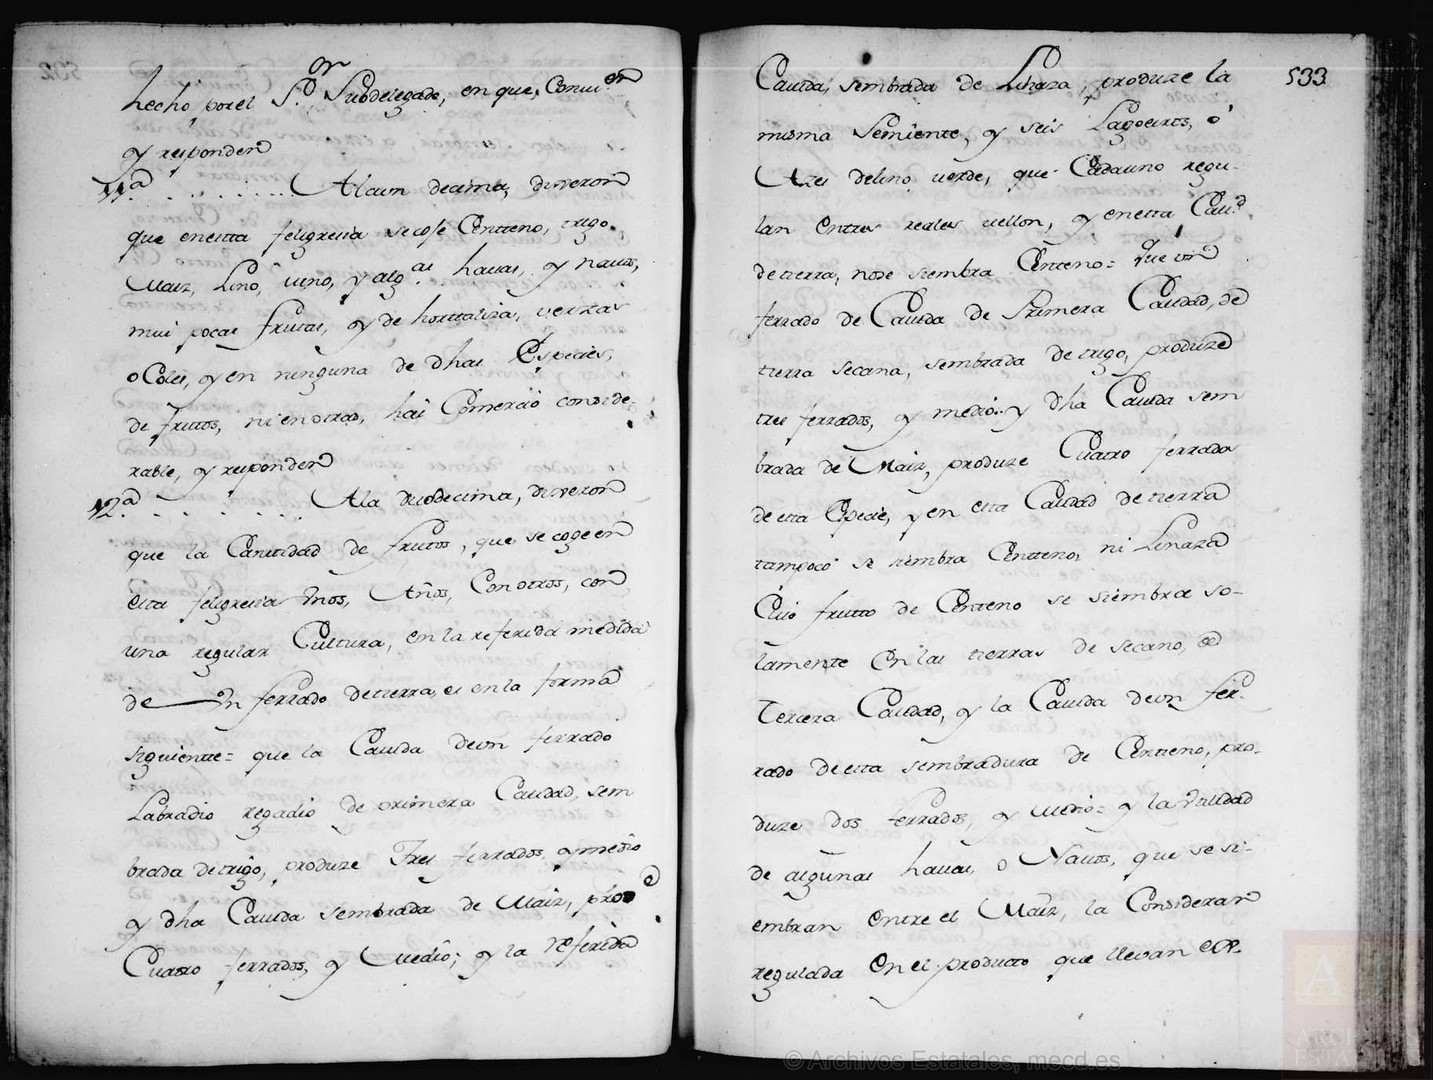 hecho por el S.or Subdelegado, en que, Convien.en
y responden
11.a Alaun decima, dixeron
que enesta feligresia se cose Centteno, trigo.
Maiz, Lino, vino, y alg.as havas, y navos,
mui pocas fruttas, y de horttaliza, verzas
o Coles, y en ninguna de dhas Especies,
de fruttos, ni en ottras, hai Comercio conside-
rable, y responden
12.a Ala duodecima, dixeron
que la Canttidad de fruttos, que se cogen en
esta feligresia Unos, Años, Con ottros, con
una regular Culttura, en la referida medida
de Un ferrado de tierra, es en la forma
siguiente= que la Cavida deun ferrado
Labradio regadio de primera Calidad, sem
brada de trigo, produze Tres ferrados, y medio
y dha Cavida sembrada de Maiz, produze
Cuatro ferrados, y Medio; y la referida
533
Cavida, sembrada de Linaza, produze la
misma Semiente, y seis Lagoeiros, ó
Azes delino verde, que Cada uno regu-
lan en tres reales vellon, y enesta Calid.d
de tierra, nose siembra Centeno= Que un
ferrado de Cavida de Primera Calidad, de
tierra secana, sembrada de trigo, produze
tres ferrados, y medio. y dha Cavida sem
brada de Maiz, produze Cuatro ferrados
de esta Especie, y en esta Calidad de tierra
tampoco se siembra Centteno, ni Linaza
Cuio frutto de Centeno se siembra so-
lamente En las tierras de secano, de
Tercera Calidad, y la Cavida deun fer-
rado de esta sembradura de Centteno, pro-
duze dos ferrados, y medio= y la Utilidad
de algunas havas, o Navos, que se si-
embran Entre el Maiz, la Consideran
regulada En el producto que llevan
© Archivos Estatales, mecd.es